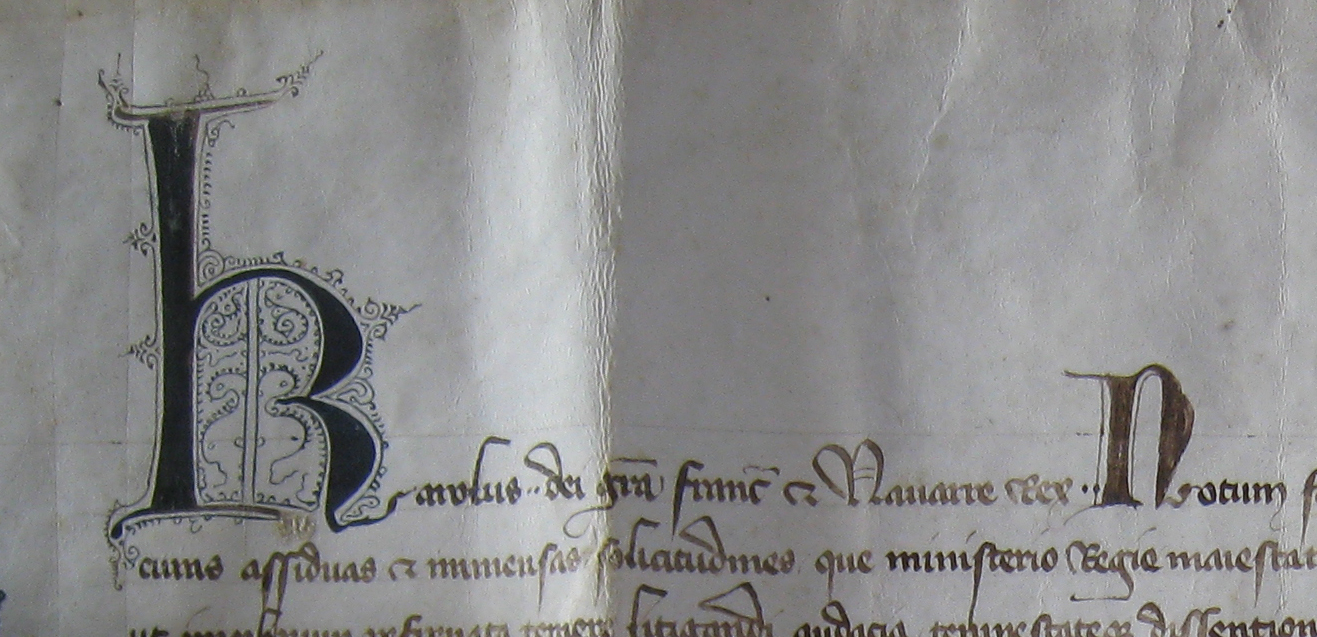 Karolus dei gra franc & Navarre Rex Notum f
cuius assiduas & immensas solicitudines que ministerio Regie maiestat
ut temere litigandi audacia dissention